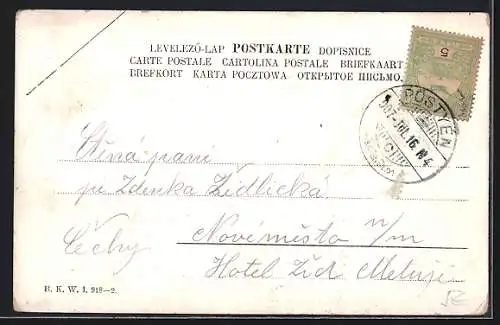 LEVELEZŐ-LAP POSTKARTE DOPISNICE
CARTE POSTALE CARTOLINA POSTALE BRIEFKAART
BREFKORT KARTA POCZTOWA ОТКРЫТОЕ ПИСЬМО.
5
PÖSTYÉN
907 JUL. 16. N 4
Ctěná paní
Zdenka Židlická
Nové město n/m
Čechy
Hotel Židl Metuji
B. K. W. I. 918—2.